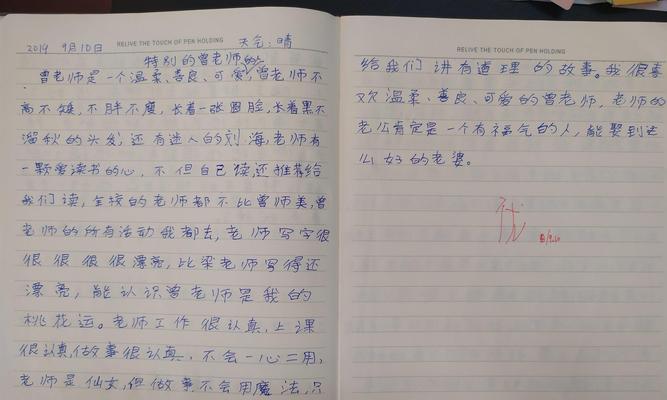 RELIVE THE TOUCH OF PEN HOLDING
2019 9月10日 天气:晴
特别的曾老师
曾老师是一个温柔、善良、可爱,曾老师不
高不矮,不胖不瘦,长着一张圆脸,长着黑不
溜秋的头发,还有迷人的刘海,老师有
一颗爱读书的心,不但自己读还推荐给
我们读,全校的老师都不比曾师美,曾
老师的所有活动我都去,老师写字很
很很很很漂亮,比梁老师写得还
漂亮,能认识曾老师是我的
桃花运。老师工作很认真,上课
很认真,做事很认真,不会一心二用,
老师是仙女,但做事不会用魔法,只
RELIVE THE TOUCH OF PEN HOLDING
给我们讲有道理的故事。我很喜
欢温柔、善良、可爱的曾老师,老师的
老公肯定是一个有福气的人,能娶到这
么好的老婆。
优